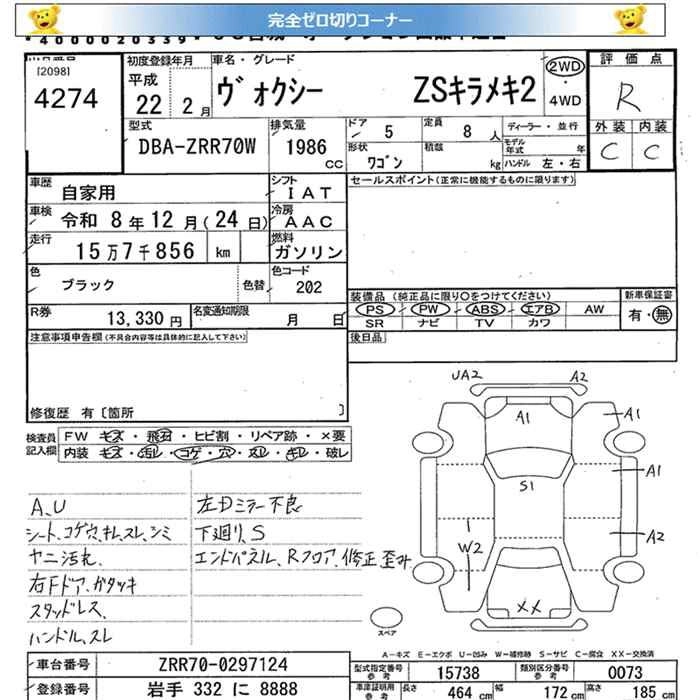 完全ゼロ切りコーナー
[2098]
4274
初度登録年月
平成
22 2 月
車名・グレード
ヴォクシー ZSキラメキ2
2WD
・
4WD
評価点
R
外装 内装
C C
型式
DBA-ZRR70W
排気量
1986
CC
ドア 5
定員 8 人
形状 ワゴン
積載 kg
ディーラー・並行
モデル年式 年
ハンドル 左・右
車歴 自家用
シフト IAT
セールスポイント(正常に機能するものに限ります)
車検 令和 8 年 12 月 ( 24 日)
冷房 AAC
走行 15万7千856 km
燃料 ガソリン
色 ブラック 色替
色コード 202
装備品 (純正品に限り○をつけてください)
新車保証書
PS PW ABS エアB AW
有・無
SR ナビ TV カワ
R券 13,330 円
名変通知期限 月 日
後日品
注意事項申告欄(不具合内容等は具体的に記入して下さい)
修復歴 有〔箇所 〕
検査員記入欄
FW キズ・飛石・ヒビ割・リペア跡・×要
内装 キズ・汚レ・コゲ・穴・スレ・キレ・破レ
UA2 A2
A1 A1
A1
S1
A2
W2
XX
スペア
A、U
シート、コゲ穴、キレ、スレ、シミ
ヤニ汚れ、
右Fドア、ガタツキ
スタッドレス、
ハンドル、スレ
左Dミラー不良
下廻り、S
エンドパネル、Rフロア、修正歪み
A-キズ E-エクボ U-凹み W-補修跡 S-サビ C-腐食 XX-交換済
車台番号 ZRR70-0297124
型式指定番号 参考 15738
類別区分番号 参考 0073
登録番号 岩手 332 に 8888
車庫証明用 参考 長さ 464 cm 幅 172 cm 高さ 185 cm